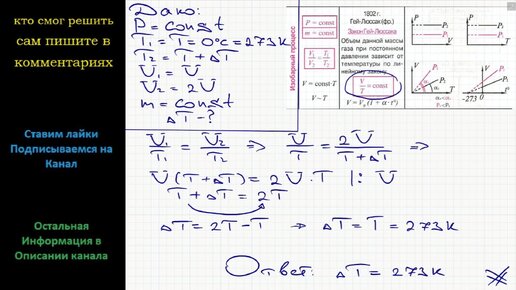 кто смог решить
сам пишите в
комментариях
Ставим лайки
Подписываемся на
Канал
Остальная
Информация в
Описании канала
Дано:
P = const
T₁ = T = 0°C = 273 K
T₂ = T + ΔT
V₁ = V
V₂ = 2V
m = const
ΔT - ?
Изобарный процесс
P = const
m = const
V₁/V₂ = T₁/T₂
V = const·T
V ~ T
1802 г.
Гей-Люссак (фр.)
Закон Гей-Люссака
Объем данной массы
газа при постоянном
давлении зависит от
температуры по ли-
нейному закону.
V/T = const
V = V₀(1 + α·t°)
V₁/T₁ = V₂/T₂ => V/T = 2V/(T + ΔT) =>
V(T + ΔT) = 2V·T |: V
T + ΔT = 2T
ΔT = 2T - T => ΔT = T = 273 K
Ответ: ΔT = 273 K